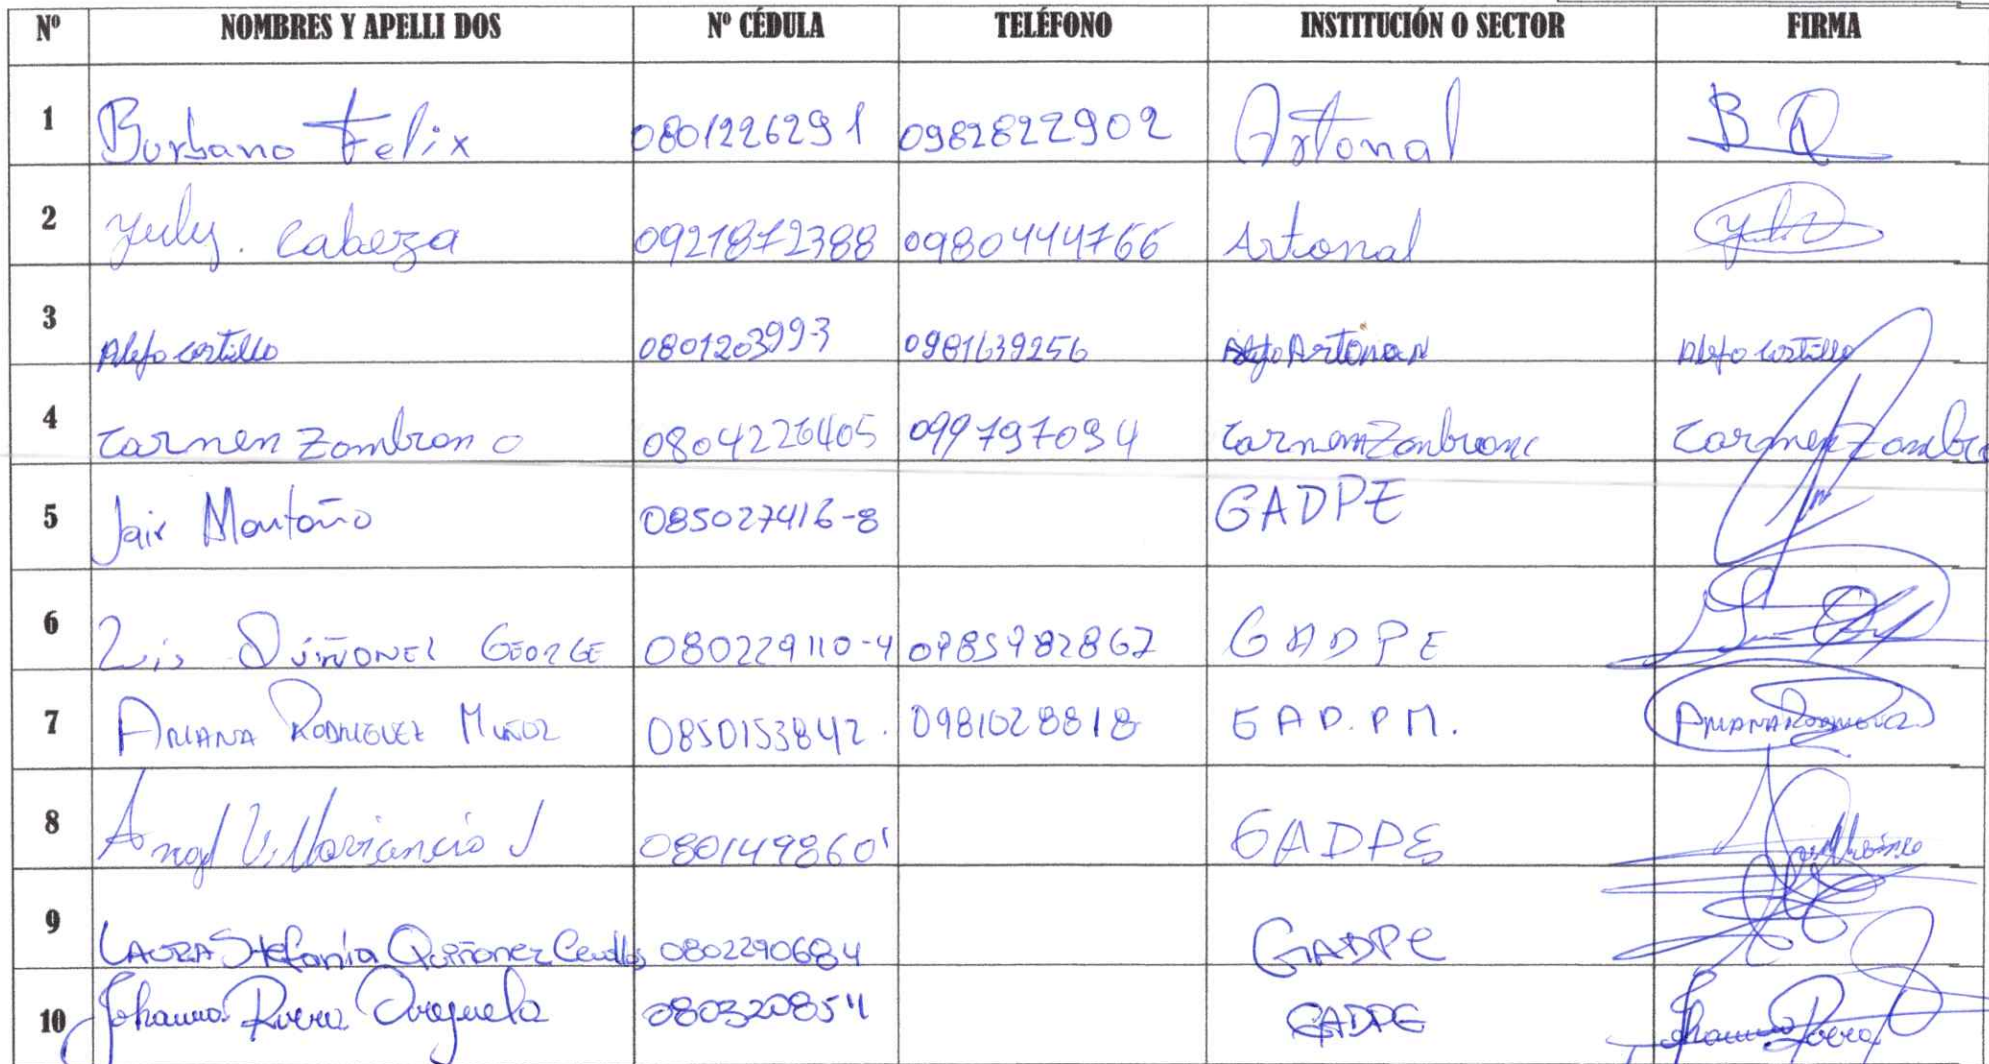 Nº NOMBRES Y APELLI DOS Nº CÉDULA TELÉFONO INSTITUCIÓN O SECTOR FIRMA
1 Burbano Felix 0801226291 0982822902 Artonal B
2 Yuly. Cabeza 0921872388 0980444766 Artonal
3 Alejo Costillo 080120399-3 0981639256 Artonan Alejo Costillo
4 Carmen Zombrono 0804226405 099797094 Carmen Zonbrono Carmen Zombro
5 Jair Montaño 085027416-8 GADPE
6 Luis Quiñonez George 080229110-4 0985982867 GADPE
7 Ariana Rodriguez Muñoz 0850153842. 0981028818 GAD.PM. Ariana Rodriguez
8 Angel Villavicencio J 0801498601 GADPE
9 Laura Stefania Quiñonez Cevallos 0802290684 GADPE
10 Johanna Rivera 080320854 GADPE Johanna Rivera